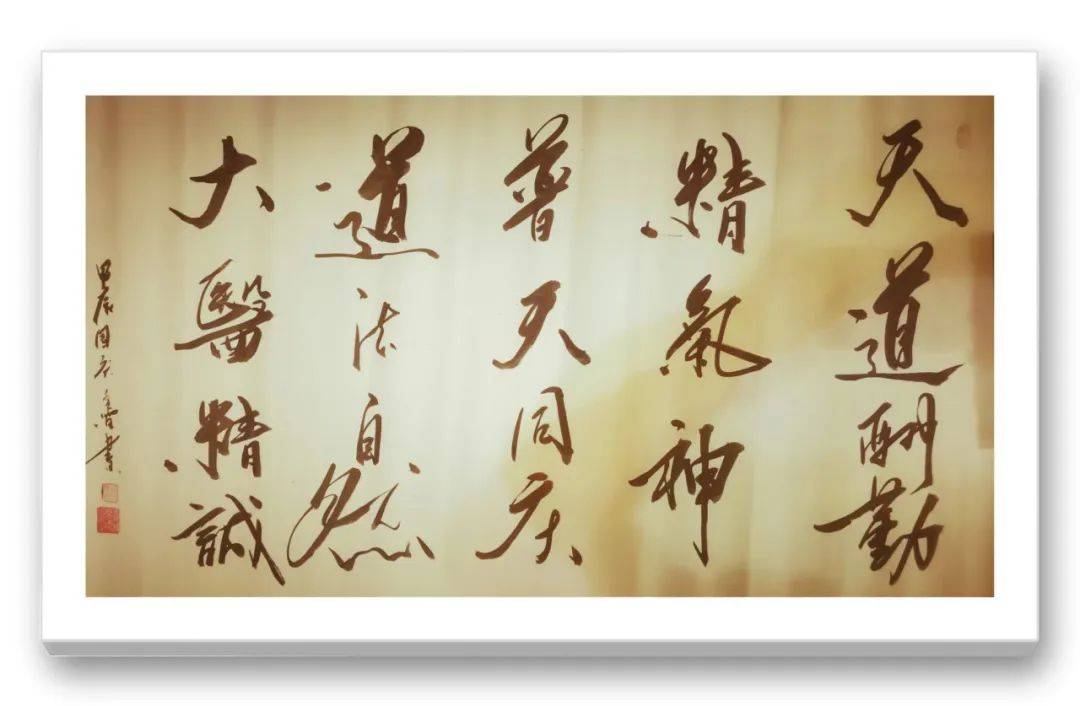 天道酬勤
精氣神
普天同庆
道法自然
大醫精誠
甲辰周
書